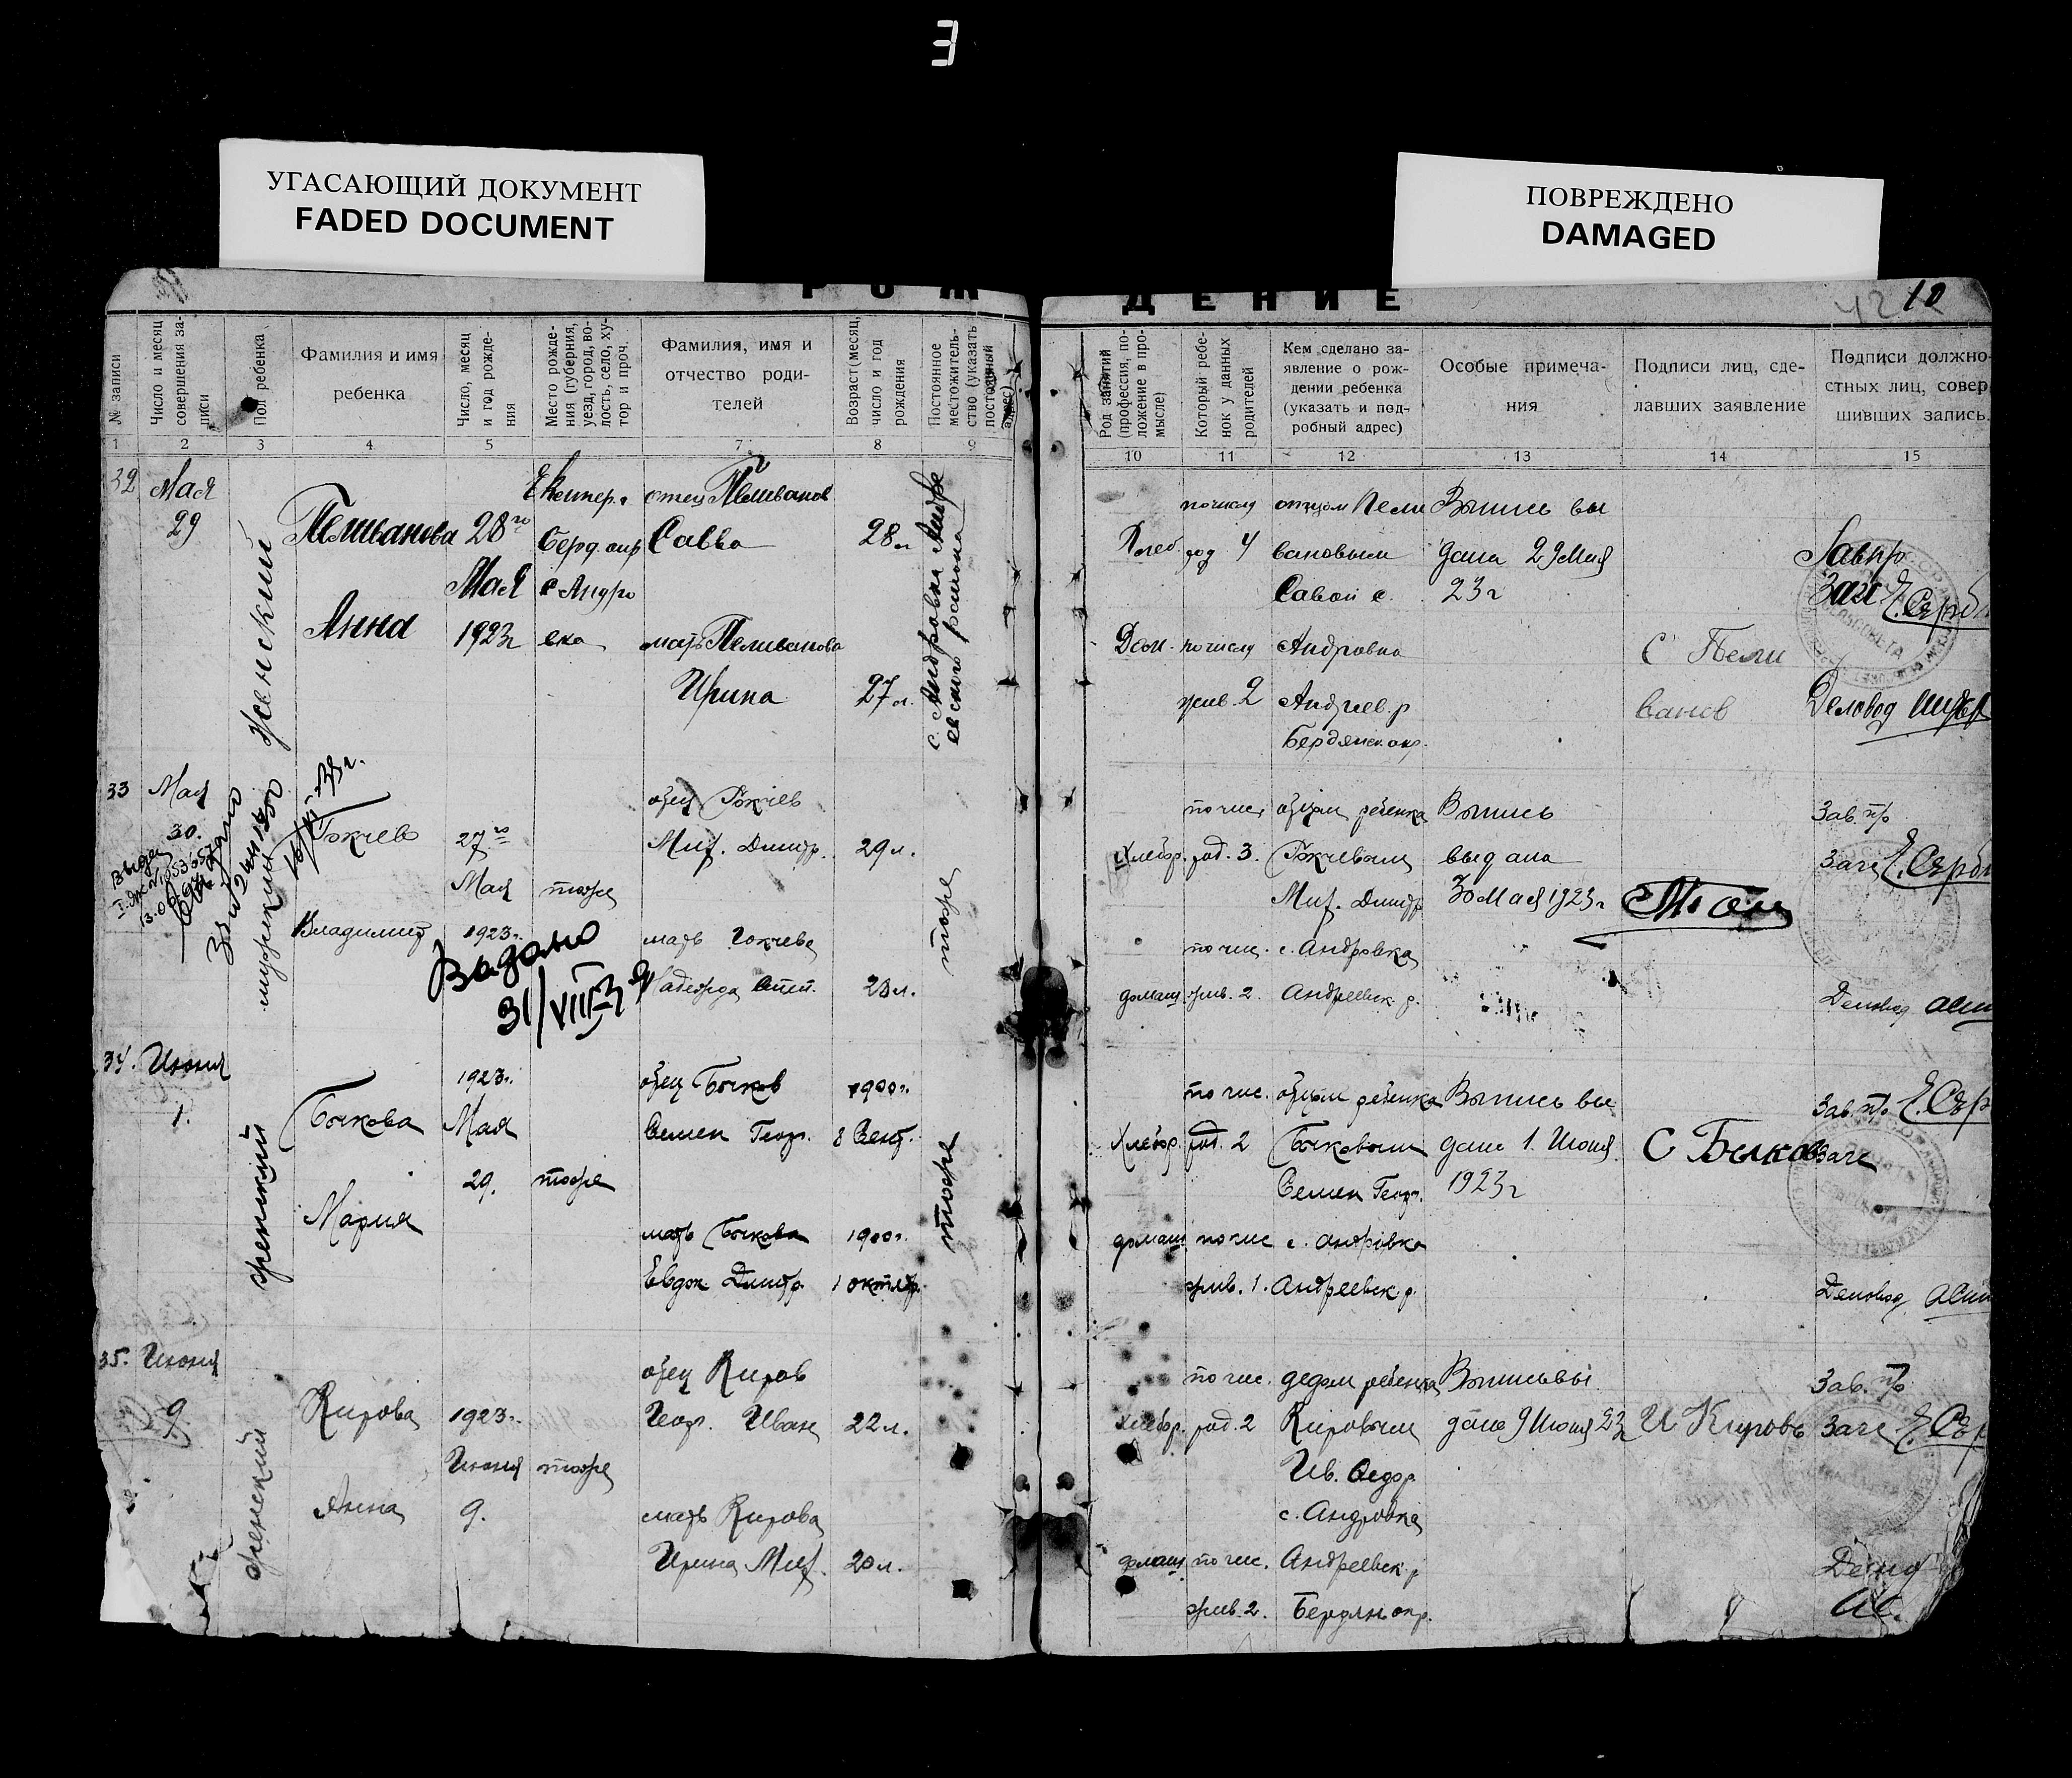 E
УГАСАЮЩИЙ ДОКУМЕНТ
FADED DOCUMENT
ПОВРЕЖДЕНО
DAMAGED
РОЖ
ДЕНИЕ
42
10
№ записи
Число и месяц совершения за-
писи
Пол ребенка
Фамилия и имя
ребенка
Число, месяц
и год рожде-
ния
Место рожде-
ния (губерния,
уезд, город, во-
лость, село, ху-
тор и проч.
Фамилия, имя и
отчество роди-
телей
Возраст (месяц,
число и год
рождения
Постоянное
местожитель-
ство (указать
постоянный
адрес)
Род занятий
(профессия, по-
ложение в про-
мысле)
Который ребе-
нок у данных
родителей
Кем сделано за-
явление о рож-
дении ребенка
(указать и под-
робный адрес)
Особые примеча-
ния
Подписи лиц, сде-
лавших заявление
Подписи должно-
стных лиц, совер
шивших запись.
1 2 3 4 5 6 7 8 9
10 11 12 13 14 15
32
Мая
29
женский
Пеливанова
Анна
28го
Мая
1923г
Екатер.
Берд. окр
с Андро
вка
отец Пеливанов
Савва
мать Пеливанова
Ирина
28л
27л.
с. Андровка Андре
евского района
Хлеб.
Дом.
по числу
род 4
по числу
жив. 2
отцом Пели
вановым
Савой с.
Андровка
Андреев. р
Бердянск. окр.
Выпись вы
дана 29 Мая
23г
С Пели
ванов
Завпр
Загс
Деловод
33
Мая
30.
мужский
Гокчев
Владимир
27го
Мая
1923г.
тоже
отец Гокчев
Мит. Димитр.
мать Гокчева
Надежда Степ.
29л.
23л.
тоже
Хлебор.
домаш.
по чис.
род. 3.
по чис.
жив. 2.
отцом ребенка
Гокчевым
Мит. Димитр
с. Андровка
Андреевск. р.
Выпись
выдана
30 Мая 1923г
Зав. п/о
Загс
Деловод
Выдано
31/VIII
34.
Июня
1.
женский
Бычкова
Мария
1923г.
Мая
29.
тоже
отец Бычков
Семен Георг.
мать Бычкова
Евдок Димитр.
1900г.
8 Сент.
1900г.
1 октябр.
тоже
Хлебор.
домаш.
по чис.
род. 2
по чис
жив. 1.
отцом ребенка
Бычковым
Семен Георг.
с. Андровка
Андреевск. р.
Выпись вы
дана 1. Июня
1923г
С Бычков
Зав. п/о
Загс
Деловод
35.
Июня
9.
женский
Кирова
Анна
1923г.
Июня
9.
тоже
отец Киров
Георг. Иван
мать Кирова
Ирина Мит.
22л.
20л.
Хлебор.
домаш.
по чис.
род. 2
по чис.
жив. 2.
дедом ребенка
Кировым
Ив. Федор.
с. Андровка
Андреевск. р
Бердян. окр.
Выпись вы
дана 9 Июня 23г
И Кировъ
Зав. п/о
Загс